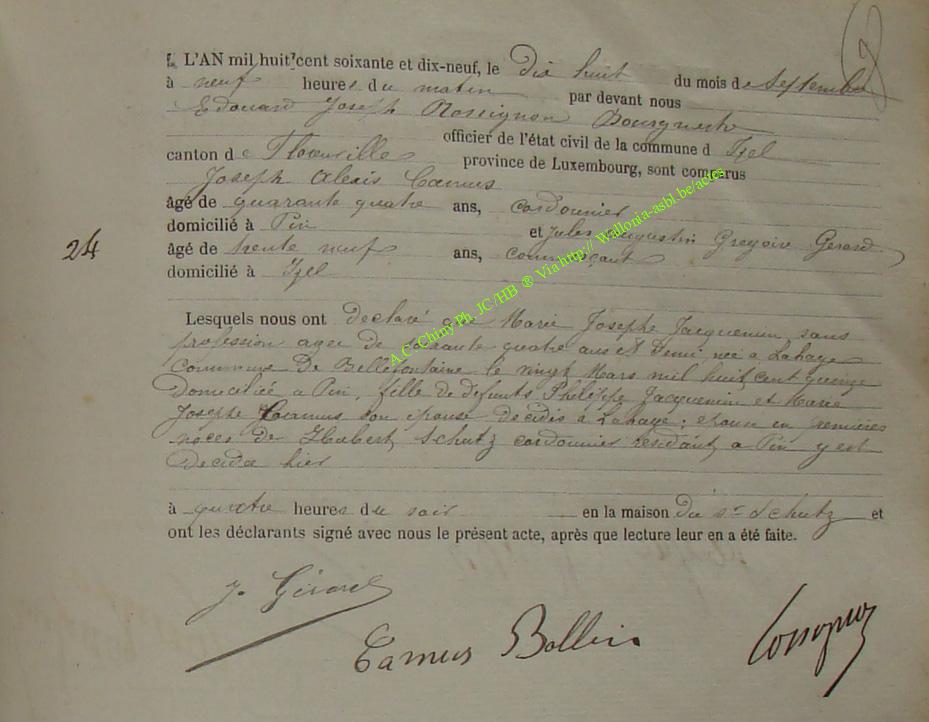 L'AN mil huit cent soixante et dix-neuf, le Dix huit du mois de Septembre
à neuf heures du matin par devant nous
Edouard Joseph Rossignon Bourgmestre
officier de l'état civil de la commune d Izel
canton de Florenville province de Luxembourg, sont comparus
Joseph Alexis Camus
âgé de quarante quatre ans, cordonnier
domicilié à Pin et Jules Augustin Gregoire Gerard
24
âgé de trente neuf ans, commerçant
domicilié à Izel
A.C. Chiny Ph. JC/HB ® Via http://Wallonia-asbl.be/actes
Lesquels nous ont declaré que Marie Josephe Jacquemin, sans
profession agée de soixante quatre ans et Demi née à Lahaye
Commune De Bellefontaine le vingt Mars mil huit cent quinze
Domiciliée a Pin, fille de defunts Philippe Jacquemin et Marie
Josephe Camus son epouse décédés à Lahaye; epouse en premières
noces de Hubert Schutz cordonnier résidant a Pin y est
decedée hier
à quatre heures du soir en la maison du sr Schutz et
ont les déclarants signé avec nous le présent acte, après que lecture leur en a été faite.
J. Gérard
Camus